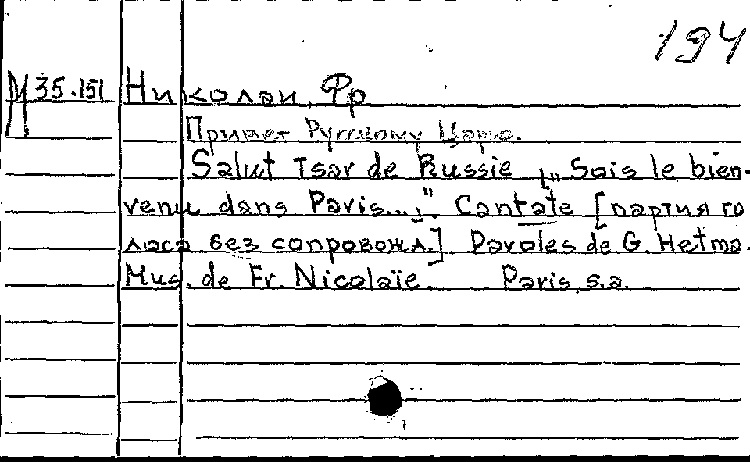 194
М 35.151 Николаи, Фр
Привет Русскому Царю.
Salut Tsar de Russie „Sois le bien-
venu dans Paris..." Cantate [партия го
лоса без сопровожд.] Paroles de G. Hetma.
Mus. de Fr. Nicolaïe. Paris, s.a.